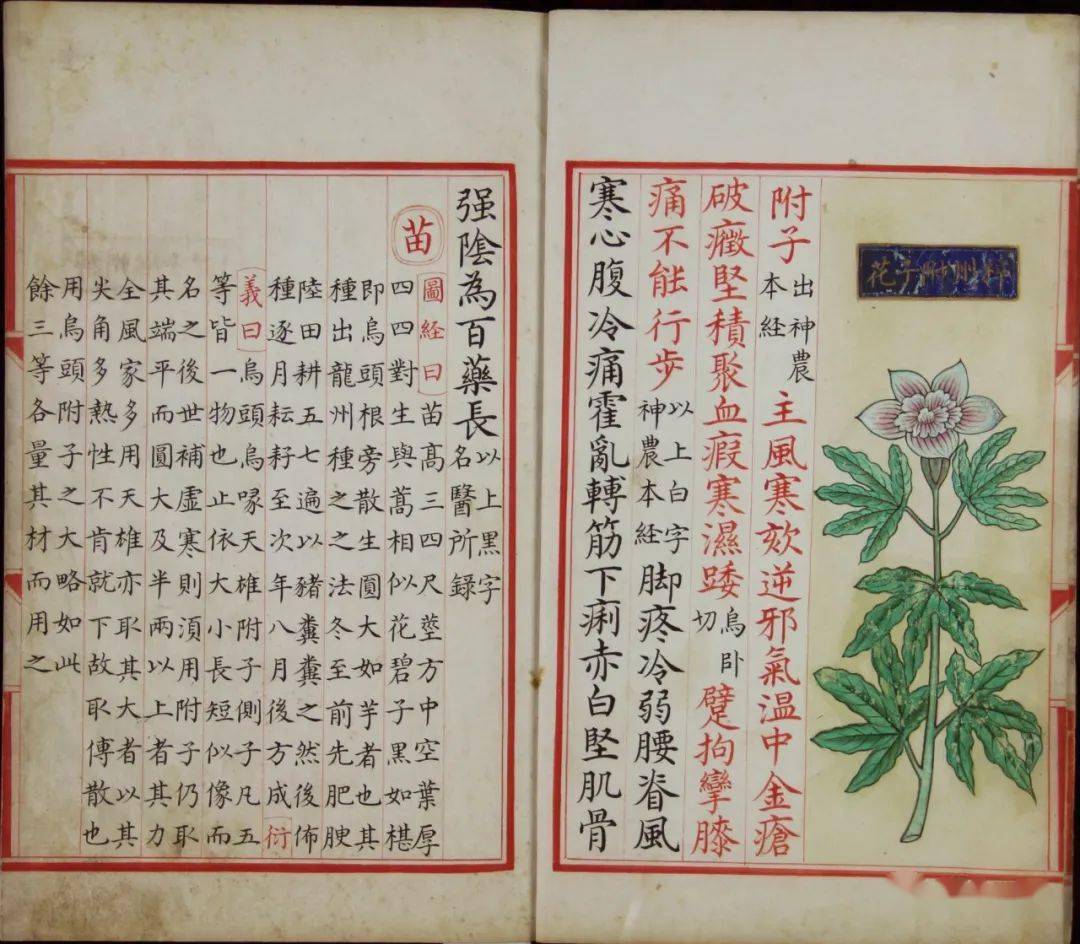 梓州附子花
附子出神農本経主風寒欬逆邪氣温中金瘡
破癥堅積聚血瘕寒濕踒烏卧切躄拘攣膝
痛不能行步以上白字神農本経脚疼冷弱腰脊風
寒心腹冷痛霍亂轉筋下痢赤白堅肌骨
强陰為百藥長以上黑字名醫所録
苗
圖経曰苗髙三四尺莖方中空葉厚
四四對生與蒿相似花碧子黑如椹
即烏頭根旁散生圓大如芋者也其
種出龍州種之之法冬至前先肥腴
陸田耕五七遍以豬糞糞之然後佈
種逐月耘耔至次年八月後方成衍
義曰烏頭烏喙天雄附子側子凡五
等皆一物也止依大小長短似像而
名之後世補虚寒則湏用附子仍取
其端平而圓大及半兩以上者其力
全風家多用天雄亦取其大者以其
尖角多熱性不肯就下故取傅散也
用烏頭附子之大略如此
餘三等各量其材而用之